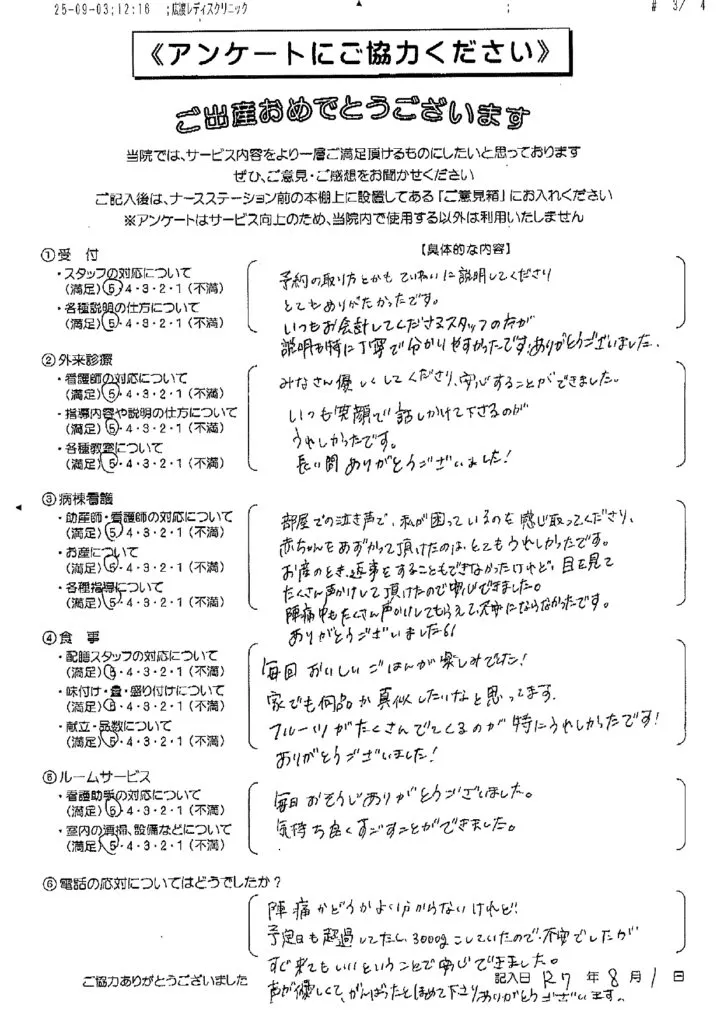 25-09-03;12:16 ;広渡レディスクリニック ; # 3/ 4
《アンケートにご協力ください》
ご出産おめでとうございます
当院では、サービス内容をより一層ご満足頂けるものにしたいと思っております
ぜひ、ご意見・ご感想をお聞かせください
ご記入後は、ナースステーション前の本棚上に設置してある「ご意見箱」にお入れください
※アンケートはサービス向上のため、当院内で使用する以外は利用いたしません
①受 付 【具体的な内容】
・スタッフの対応について
(満足) 5・4・3・2・1 (不満)
・各種説明の仕方について
(満足) 5・4・3・2・1 (不満)
予約の取り方とかも ていねいに説明してくださり
とてもありがたかったです。
いつもお会計してくださるスタッフの方が
説明も特に丁寧で分かりやすかったです。ありがとうございました。
②外来診療
・看護師の対応について
(満足) 5・4・3・2・1 (不満)
・指導内容や説明の仕方について
(満足) 5・4・3・2・1 (不満)
・各種教室について
(満足) 5・4・3・2・1 (不満)
みなさん優しくしてくださり、安心することができました。
いつも笑顔で話しかけて下さるのが
うれしかったです。
長い間ありがとうございました!
③病棟看護
・助産師・看護師の対応について
(満足) 5・4・3・2・1 (不満)
・お産について
(満足) 5・4・3・2・1 (不満)
・各種指導について
(満足) 5・4・3・2・1 (不満)
部屋での泣き声で、私が困っているのを感じ取ってくださり、
赤ちゃんをあずかって頂けたのは、とてもうれしかったです。
お産のとき、返事をすることもできなかったけれど、目を見て
たくさん声かけして頂けたので安心できました。
陣痛中もたくさん声かけしてもらえて、不安にならなかったです。
ありがとうございました
④食 事
・配膳スタッフの対応について
(満足) 5・4・3・2・1 (不満)
・味付け・量・盛り付けについて
(満足) 5・4・3・2・1 (不満)
・献立・品数について
(満足) 5・4・3・2・1 (不満)
毎回 おいしいごはんが楽しみでした!
家でも何品か真似したいなと思ってます。
フルーツがたくさんでてくるのが特にうれしかったです!
ありがとうございました!
⑤ルームサービス
・看護助手の対応について
(満足) 5・4・3・2・1 (不満)
・室内の清掃、設備などについて
(満足) 5・4・3・2・1 (不満)
毎日おそうじありがとうございました。
気持ち良くすごすことができました。
⑥電話の応対についてはどうでしたか?
陣痛かどうかよく分からないけれど
予定日も超過してたし、3000gこしていたので、不安でしたが
すぐ来てもいいということで安心できました。
声が優しくて、がんばったとほめて下さりありがとうございます。
ご協力ありがとうございました 記入日 R7 年 8 月 1 日